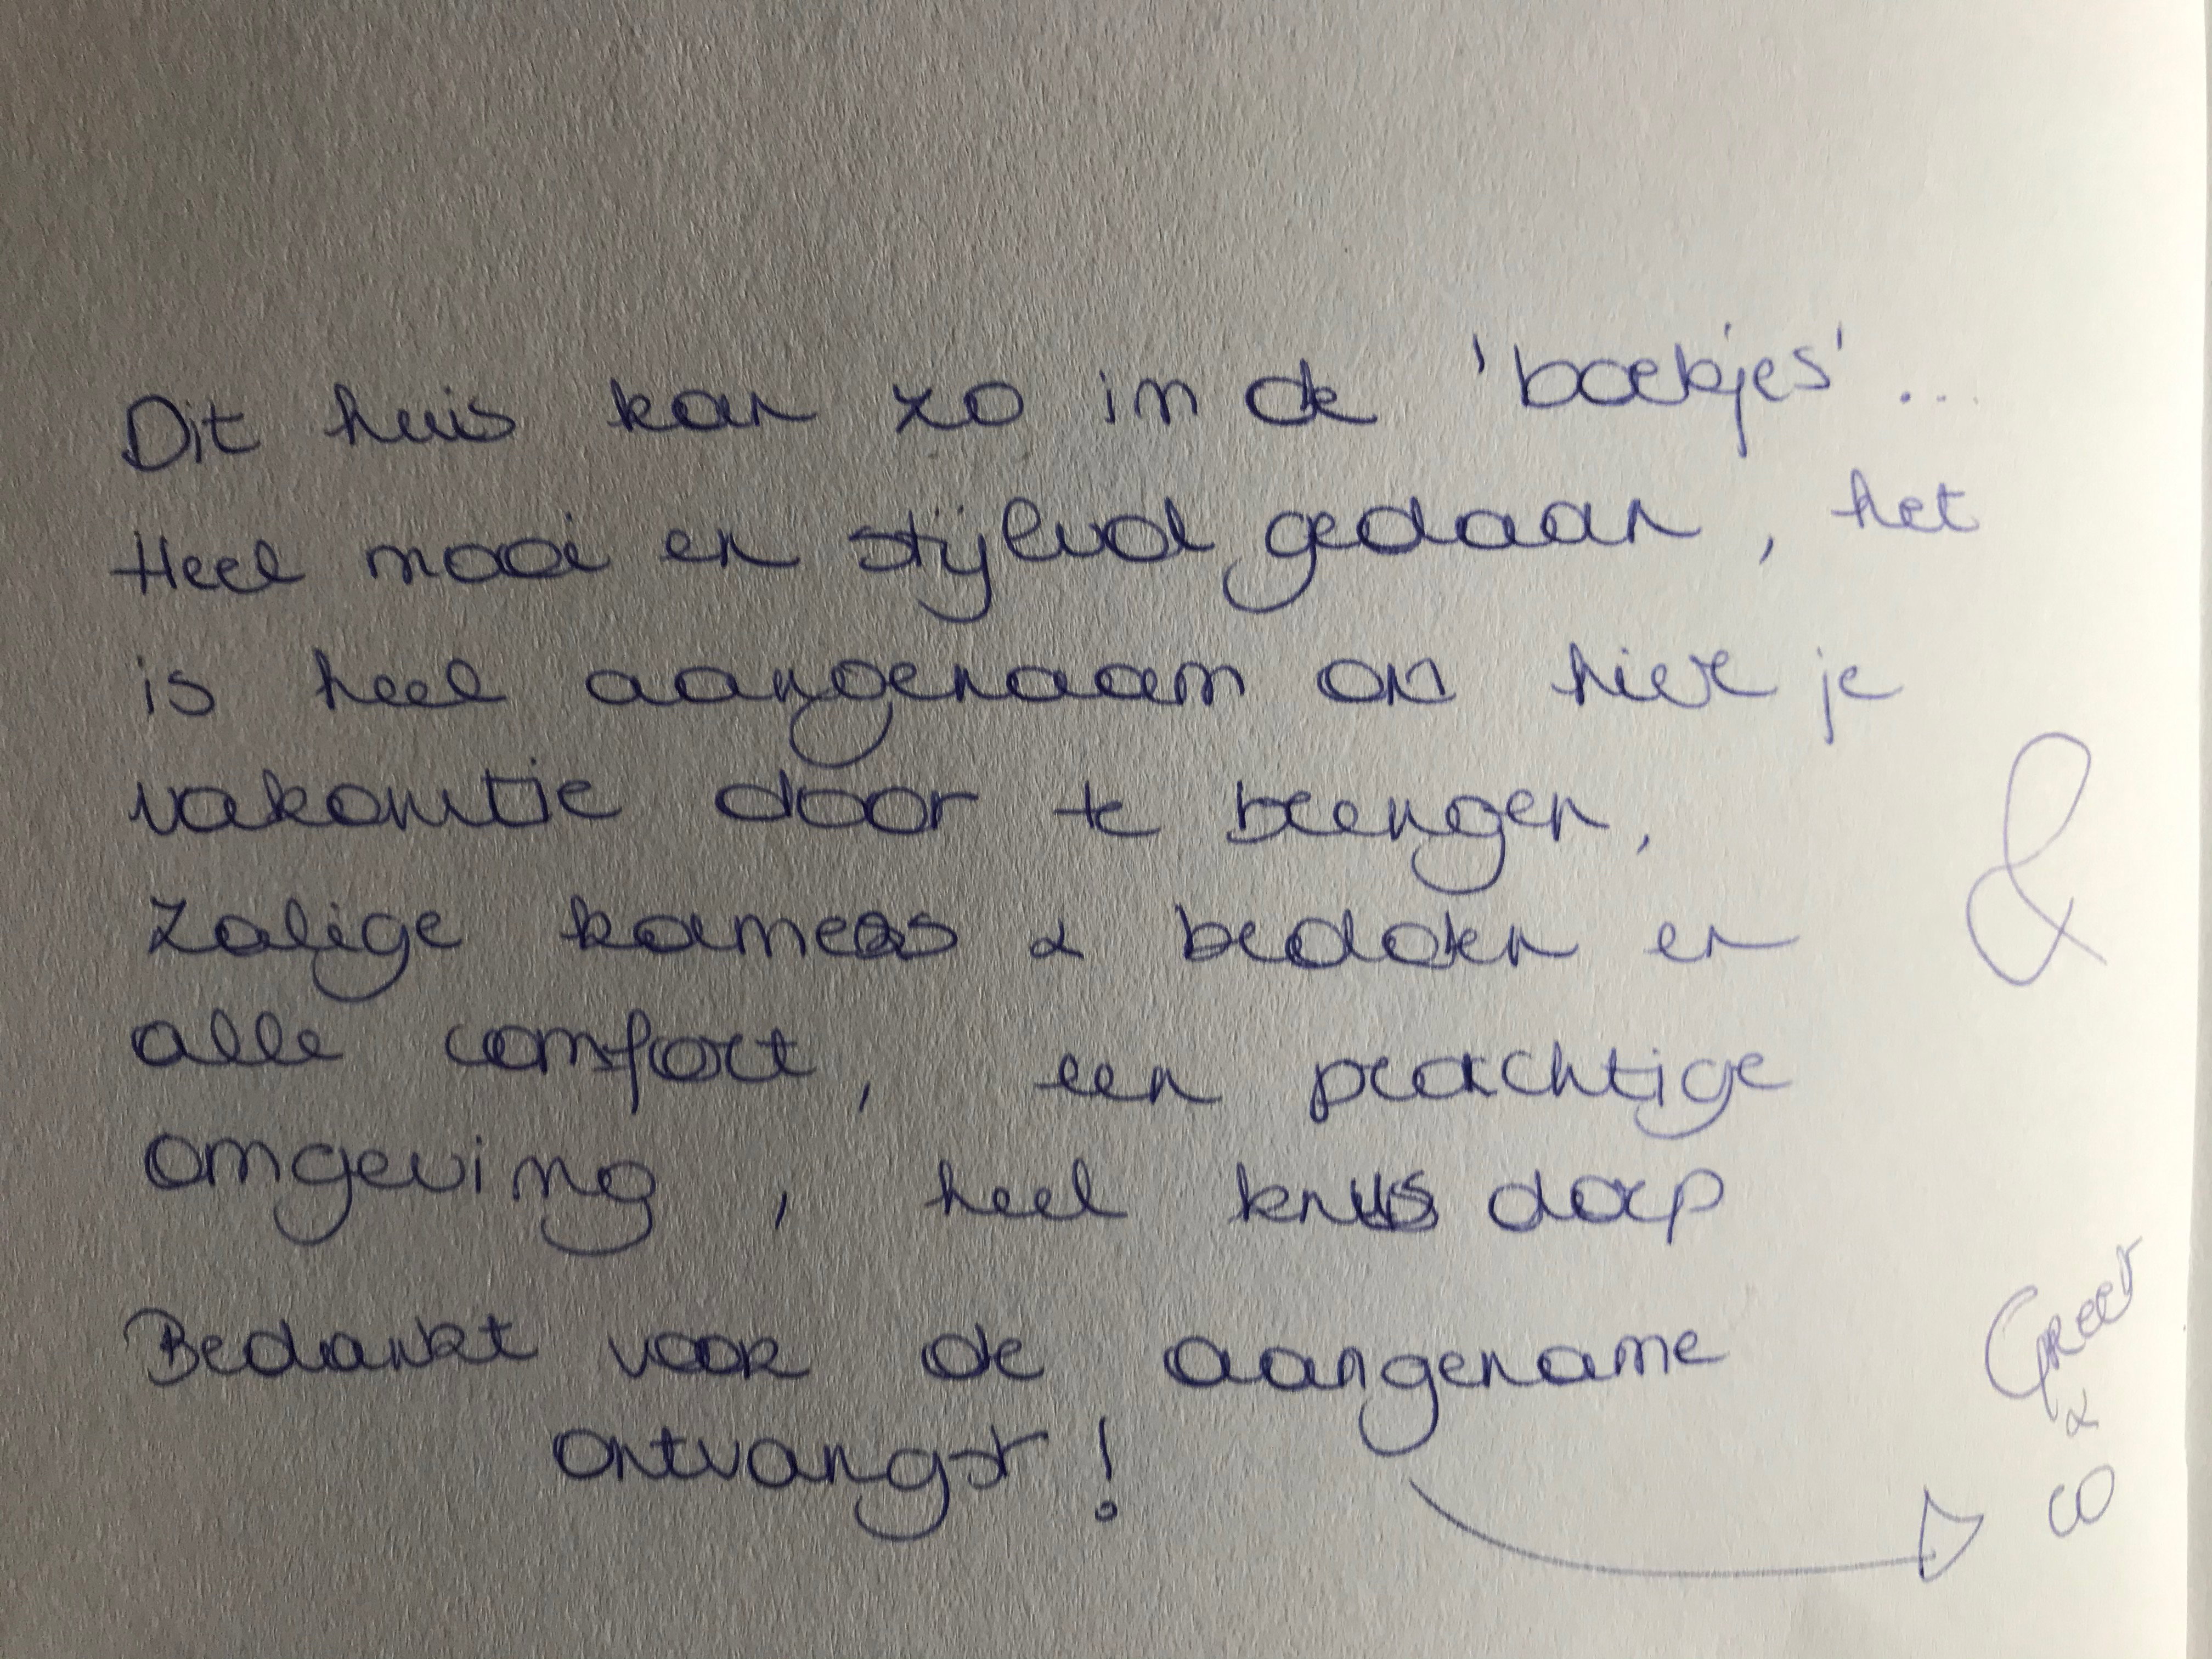 Dit huis kan zo in de 'boekjes'...
Heel mooi en stijlvol gedaan, het
is heel aangenaam om hier je
vakantie door te brengen,
zalige kamers & bedden en
alle comfort, een prachtige
omgeving, heel knus dorp
&
Bedankt voor de aangename
ontvangst!
Greet
&
co